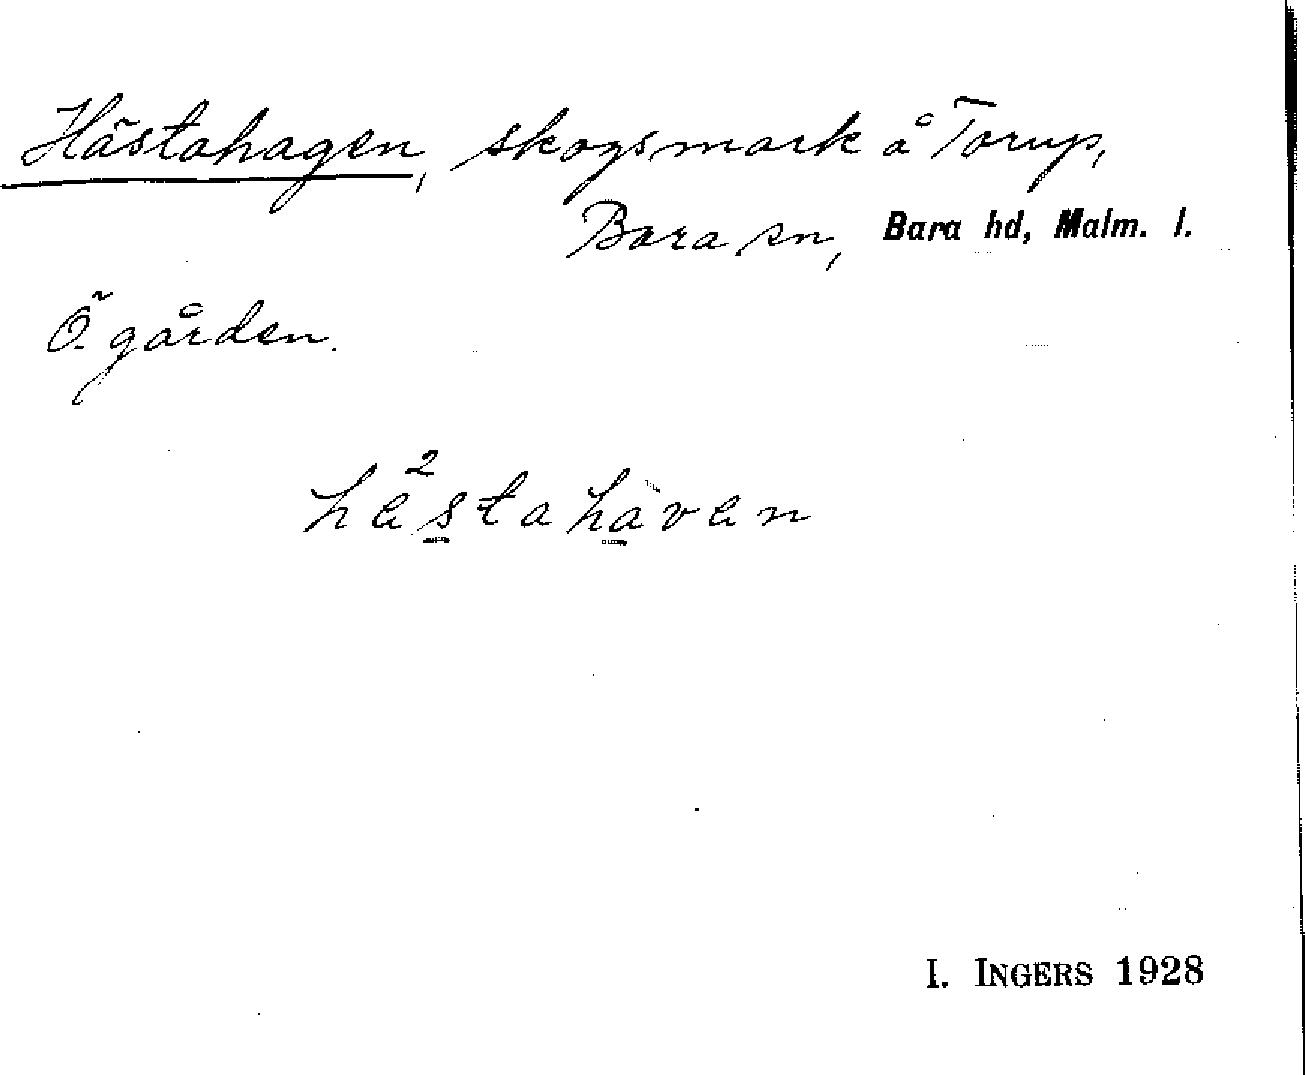 Hästahagen, skogsmark å Torup,
Bara sn, Bara hd, Malm. l.
Ö. gården.
hästahaven
I. INGERS 1928